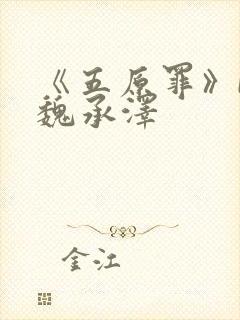 《五原罪》
魏承澤
金江